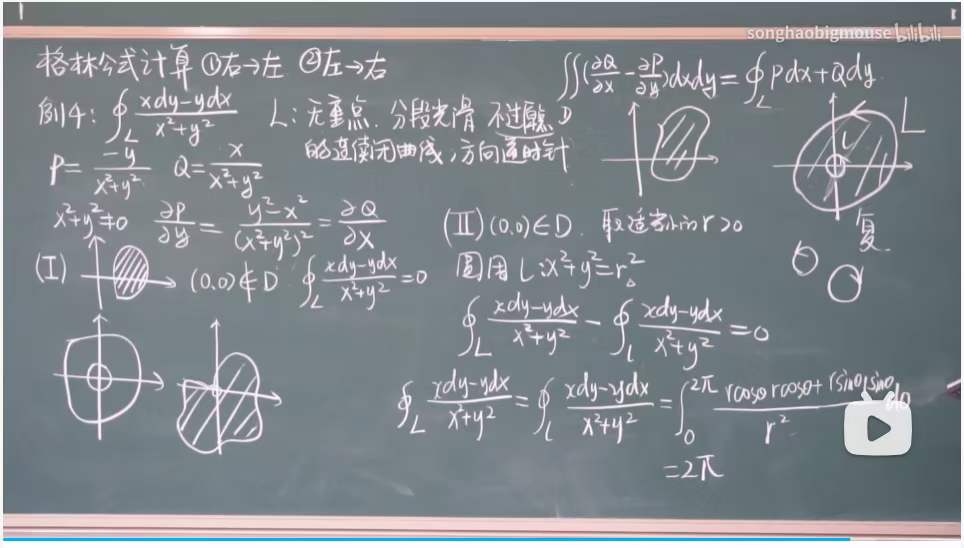 songhaobigmouse bilibili
格林公式计算 ①右→左 ②左→右
∬(∂Q/∂x - ∂P/∂y)dxdy = ∮_L Pdx+Qdy
例4: ∮_L (xdy-ydx)/(x²+y²) L: 无重点. 分段光滑 不过原点
的连续闭曲线, 方向逆时针
D
L
l
复
P= -y/(x²+y²) Q= x/(x²+y²)
x²+y²≠0 ∂P/∂y = (y²-x²)/(x²+y²)² = ∂Q/∂x
(I) (0,0)∉D ∮_L (xdy-ydx)/(x²+y²) =0
(II) (0,0)∈D. 取适当小的r>0
圆周 l: x²+y²=r².
∮_L (xdy-ydx)/(x²+y²) - ∮_l (xdy-ydx)/(x²+y²) =0
∮_L (xdy-ydx)/(x²+y²) = ∮_l (xdy-ydx)/(x²+y²) = ∫_0^2π (rcosθ rcosθ + rsinθ rsinθ)/r² dθ
=2π